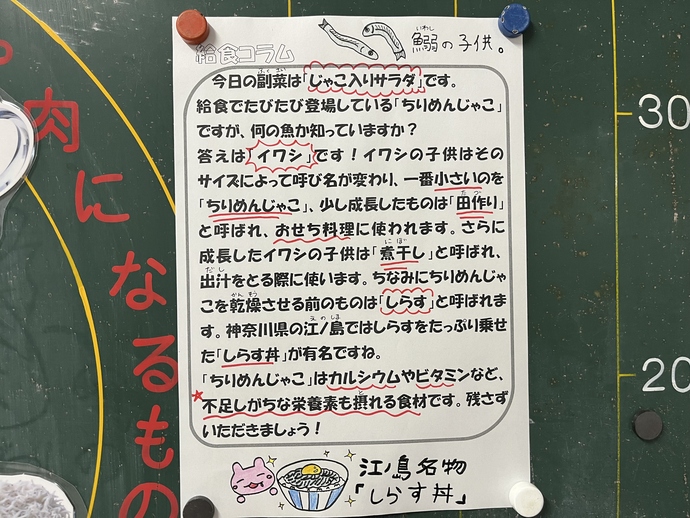 給食コラム
鰯の子供。
いわし
今日の副菜は「じゃこ入りサラダ」です。
ふくさい
給食でたびたび登場している「ちりめんじゃこ」
ですが、何の魚か知っていますか？
答えは「イワシ」です！イワシの子供はその
サイズによって呼び名が変わり、一番小さいのを
「ちりめんじゃこ」、少し成長したものは「田作り」
たづく
と呼ばれ、おせち料理に使われます。さらに
成長したイワシの子供は「煮干し」と呼ばれ、
にぼ
出汁をとる際に使います。ちなみにちりめんじゃ
だし
こを乾燥させる前のものは「しらす」と呼ばれま
かんそう
す。神奈川県の江ノ島ではしらすをたっぷり乗せ
えのしま
た「しらす丼」が有名ですね。
「ちりめんじゃこ」はカルシウムやビタミンなど、
不足しがちな栄養素も摂れる食材です。残さず
いただきましょう！
江ノ島名物
「しらす丼」
。肉になるもの
30
20